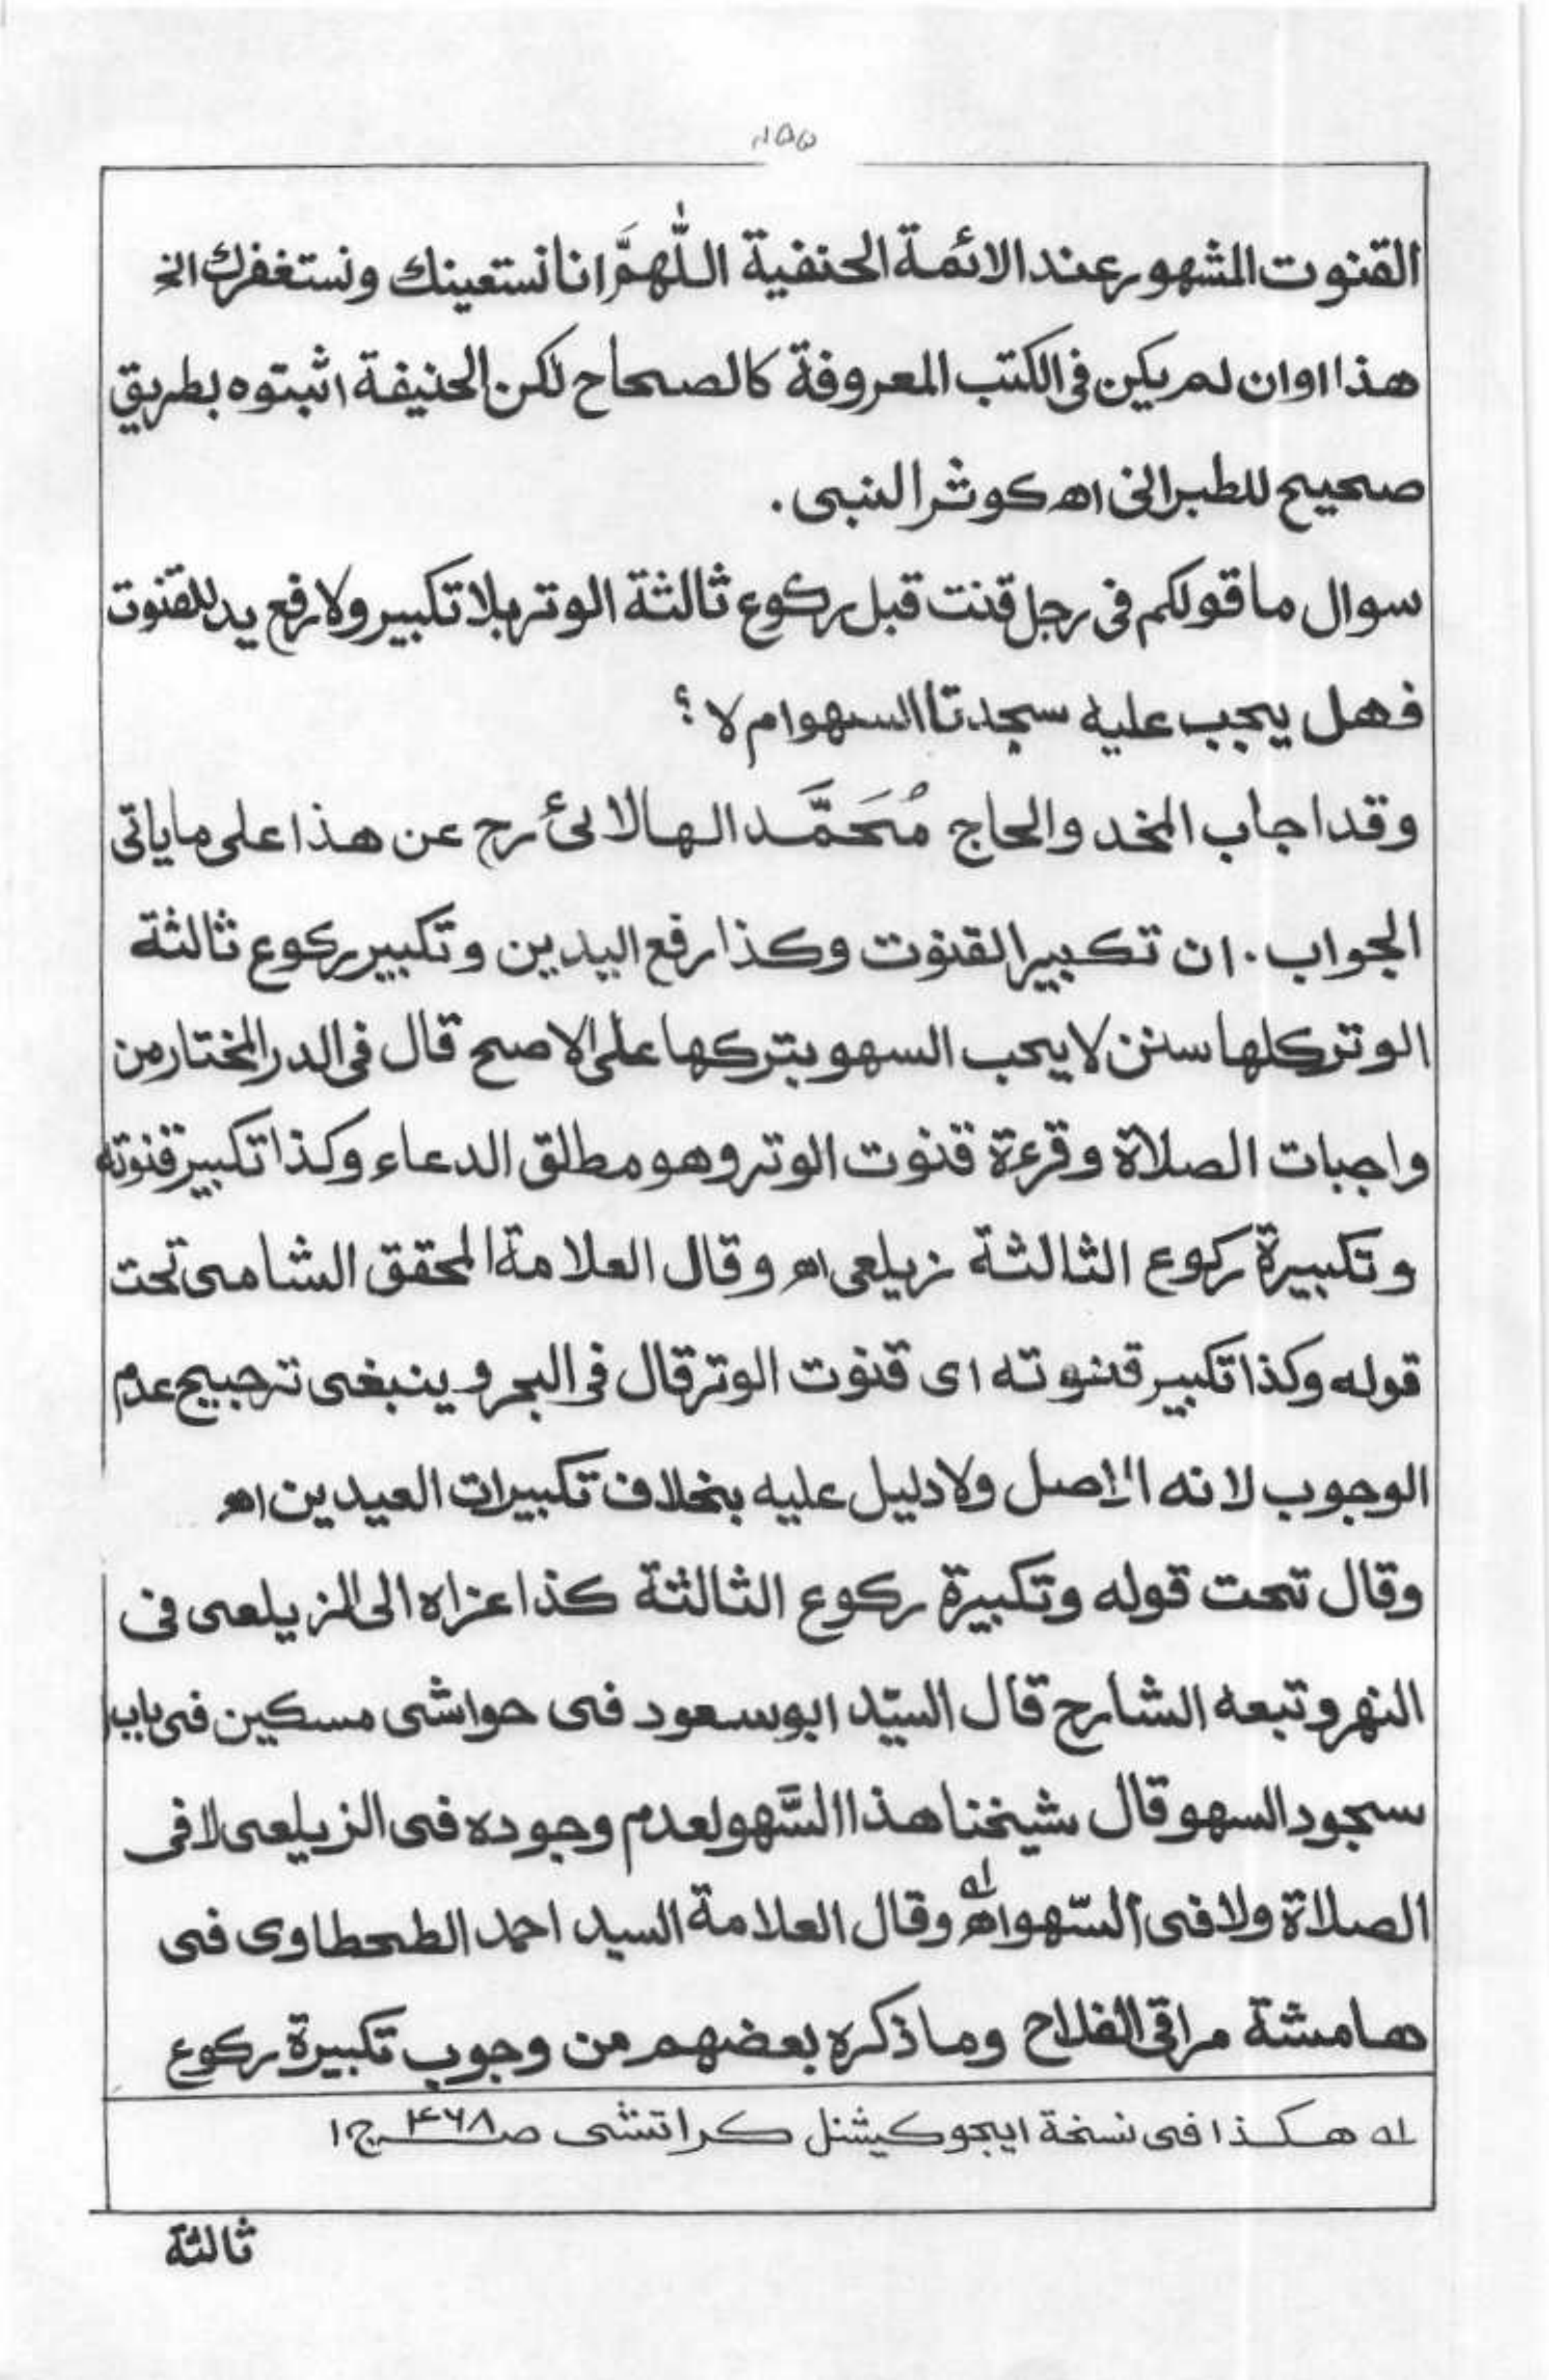 القنوت المشهور عند الائمة الحنفية اللّٰهمَّ انا نستعينك ونستغفرك الخ
هذا اوان لم يكن فى الكتب المعروفة كالصحاح لكن الحنيفة اثبتوه بطريق
صحيح للطبرانى اھ كوثر النبى .
سوال ما قولكم فى رجل قنت قبل ركوع ثالثة الوتر بلا تكبير ولا رفع يد للقنوت
فهل يجب عليه سجدتا السهو ام لا ؟
وقد اجاب المخدو الحاج مُحَمَّد الهالائى رح عن هذا على ما ياتى
الجواب . ان تكبير القنوت وكذا رفع اليدين وتكبير ركوع ثالثة
الوتر كلها سنن لا يجب السهو بتركها على الاصح قال فى الدر المختار من
واجبات الصلاة وقرءة قنوت الوتر وهو مطلق الدعاء وكذا تكبير قنوته
وتكبيرة ركوع الثالثة زيلعى اھ وقال العلامة المحقق الشامى تحت
قوله وكذا تكبير قنوته اى قنوت الوتر قال فى البحر وينبغى ترجيح عدم
الوجوب لانه الاصل ولا دليل عليه بخلاف تكبيرات العيدين اھ
وقال تحت قوله وتكبيرة ركوع الثالثة كذا عزاه الى الزيلعى فى
النهر وتبعه الشارح قال السيّد ابوسعود فى حواشى مسكين فى باب
سجود السهو قال شيخنا هذا السَّهو لعدم وجوده فى الزيلعى لا فى
الصلاة ولا فى السّهو اھ له وقال العلامة السيد احمد الطحطاوى فى
هامشة مراقى الفلاح وما ذكره بعضهم من وجوب تكبيرة ركوع
له هكذا فى نسخة ايجوكيشنل كراتشى صـ ۴۶۸ ج ۱
ثالثة